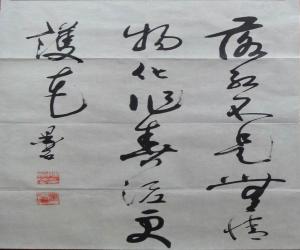 落红不是無情
物化作春泥更
護花